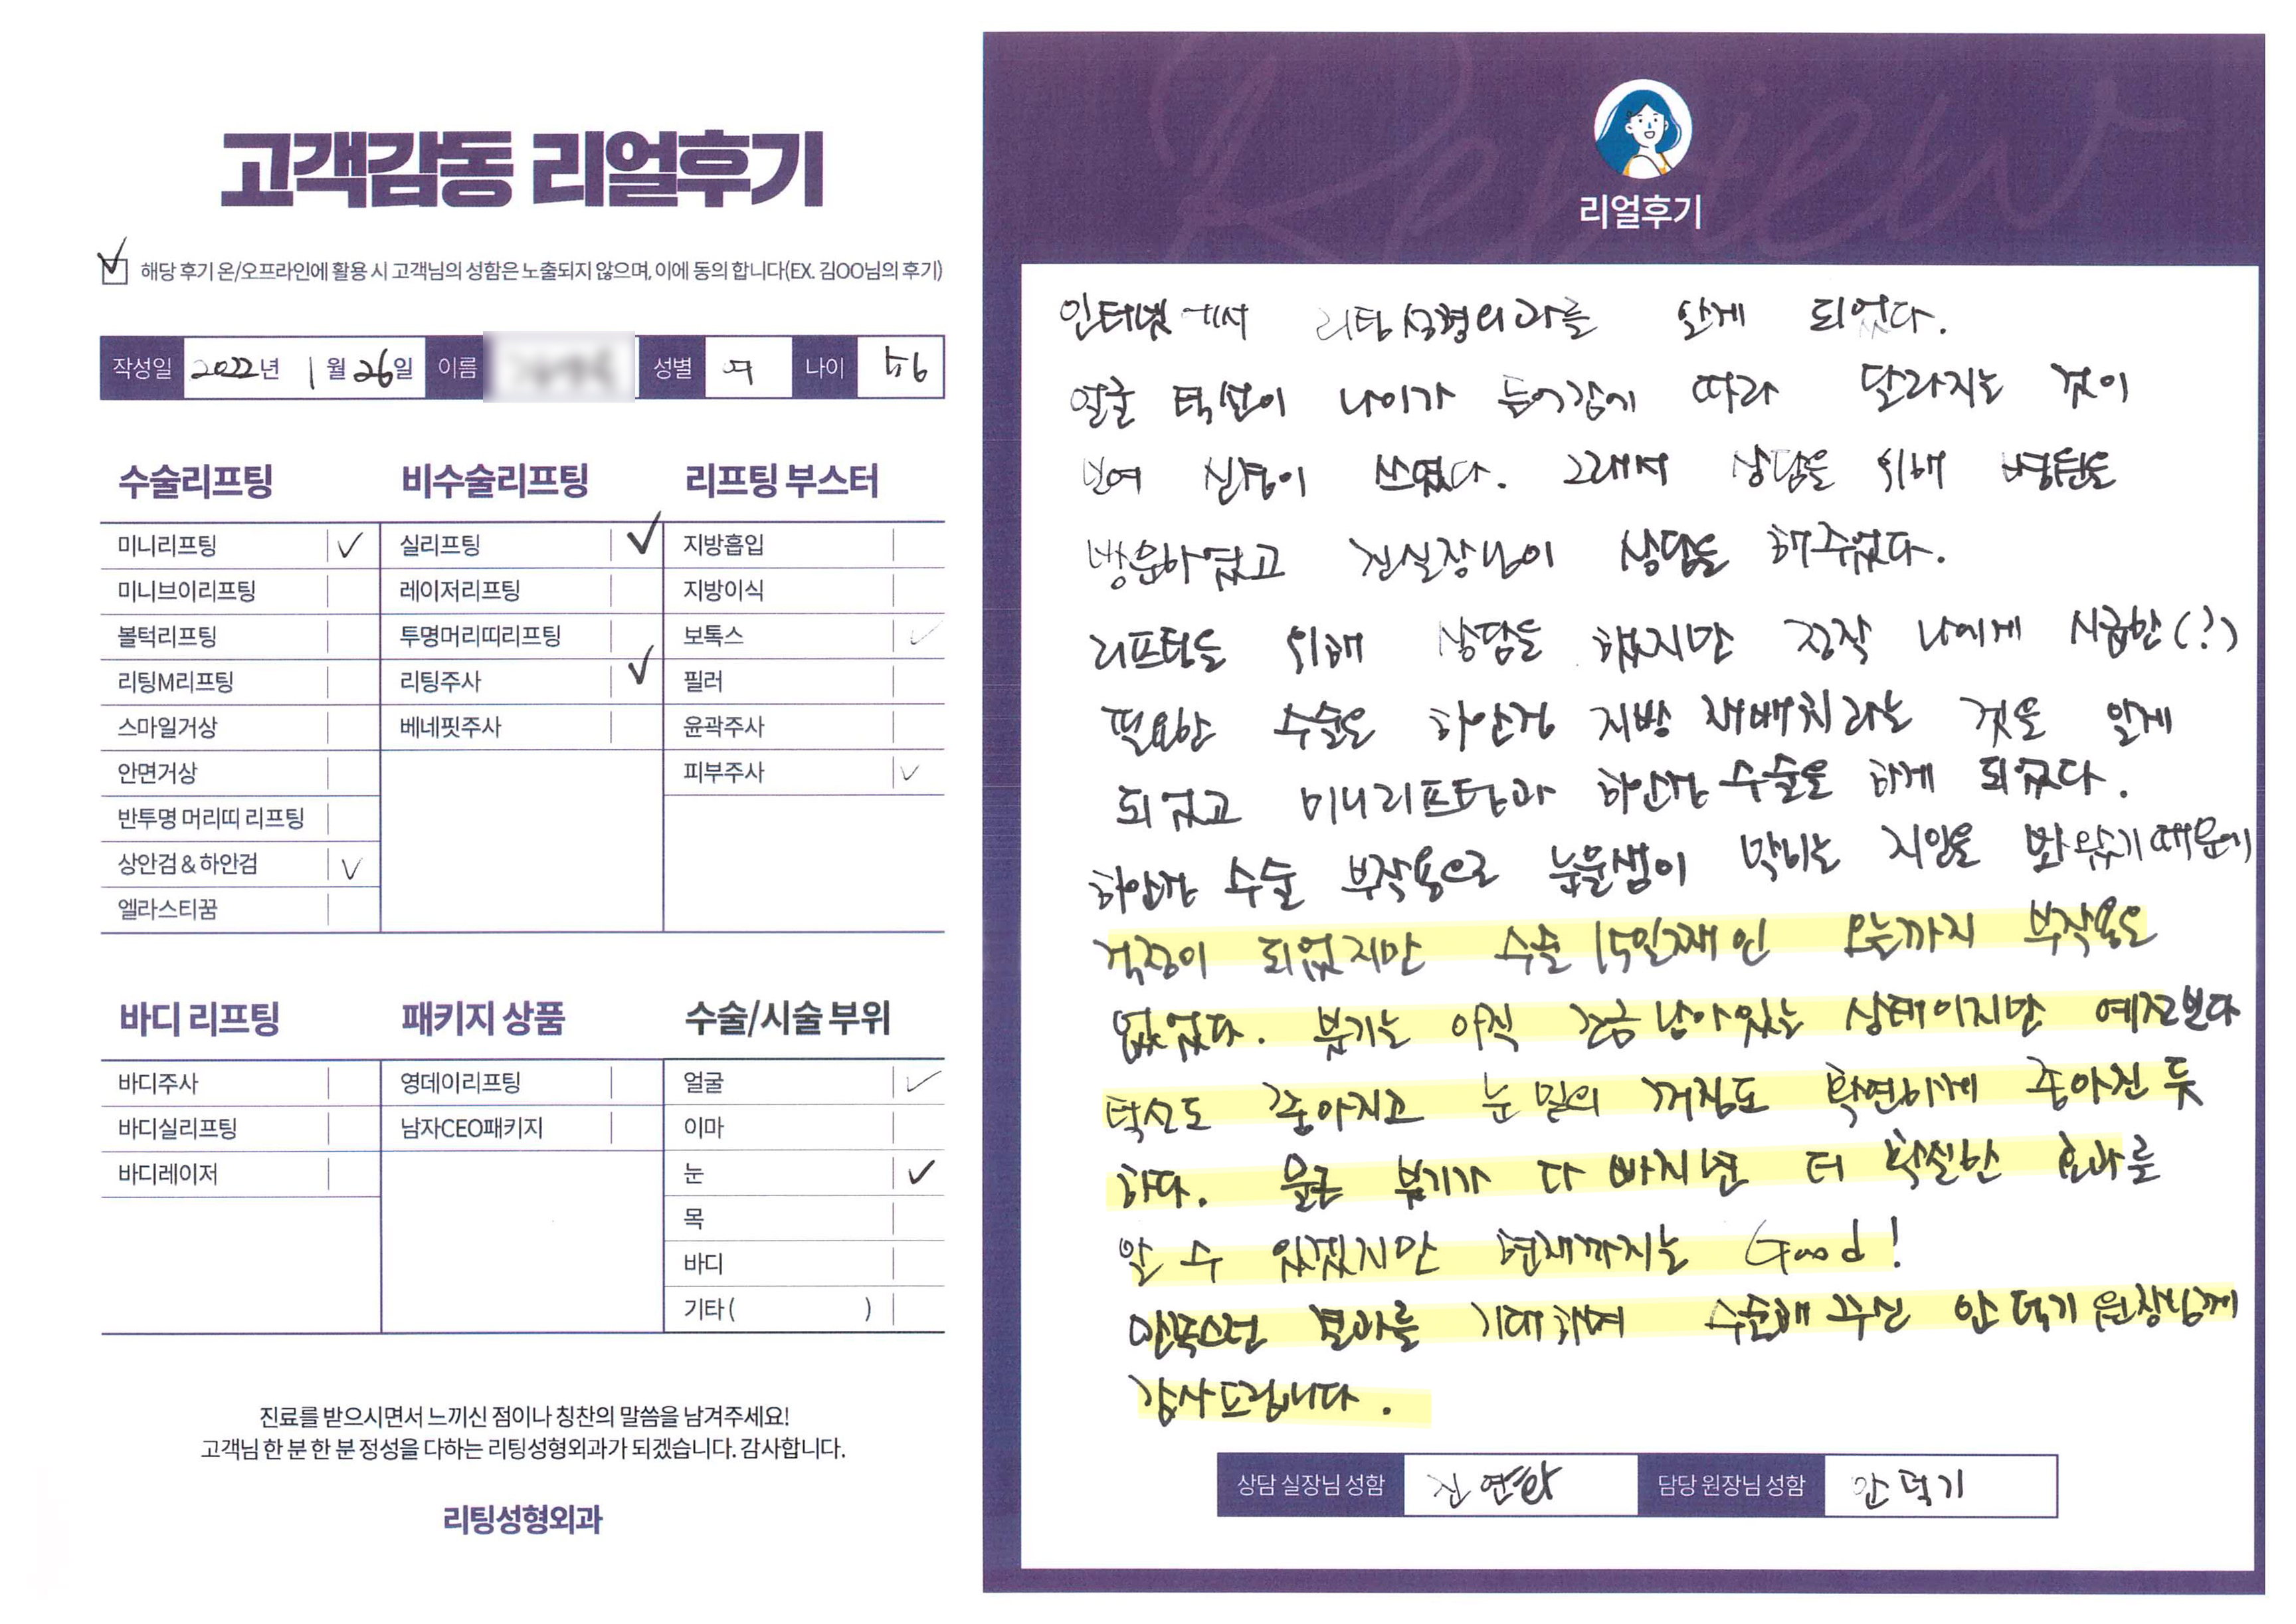 고객감동 리얼후기
해당 후기 온/오프라인에 활용 시 고객님의 성함은 노출되지 않으며, 이에 동의 합니다(EX. 김OO님의 후기)
작성일 2022년 1월 26일 이름 성별 여 나이 56
수술리프팅
미니리프팅 ✓
미니브이리프팅
볼턱리프팅
리팅M리프팅
스마일거상
안면거상
반투명 머리띠 리프팅
상안검&하안검 ✓
엘라스티꿈
비수술리프팅
실리프팅 ✓
레이저리프팅
투명머리띠리프팅
리팅주사 ✓
베네핏주사
리프팅 부스터
지방흡입
지방이식
보톡스 ✓
필러
윤곽주사
피부주사 ✓
바디 리프팅
바디주사
바디실리프팅
바디레이저
패키지 상품
영데이리프팅
남자CEO패키지
수술/시술 부위
얼굴 ✓
이마
눈 ✓
목
바디
기타 ( )
진료를 받으시면서 느끼신 점이나 칭찬의 말씀을 남겨주세요!
고객님 한 분 한 분 정성을 다하는 리팅성형외과가 되겠습니다. 감사합니다.
리팅성형외과
Review
리얼후기
인터넷에서 리팅성형외과를 알게 되었다.
얼굴 턱선이 나이가 들어감에 따라 달라지는 것이
보여 신경이 쓰였다. 그래서 상담을 위해 병원을
방문하였고 진실장님이 상담을 해주었다.
리프팅을 위해 상담을 했지만 정작 나에게 시급한(?)
필요한 수술은 하안검 지방 재배치라는 것을 알게
되었고 미니리프팅과 하안검 수술을 하게 되었다.
하안검 수술 부작용으로 눈물샘이 막히는 지인을 봐왔기 때문에
걱정이 되었지만 수술 15일째인 오늘까지 부작용은
없었다. 붓기는 아직 조금 남아있는 상태이지만 예전보다
턱선도 좋아지고 눈 밑의 꺼짐도 확연하게 좋아진 듯
하다. 물론 붓기가 다 빠지면 더 확실한 효과를
알 수 있겠지만 현재까지는 Good!
만족스런 결과를 기대하며 수술해 주신 안덕기 원장님께
감사드립니다.
상담 실장님 성함 진연화 담당 원장님 성함 안덕기